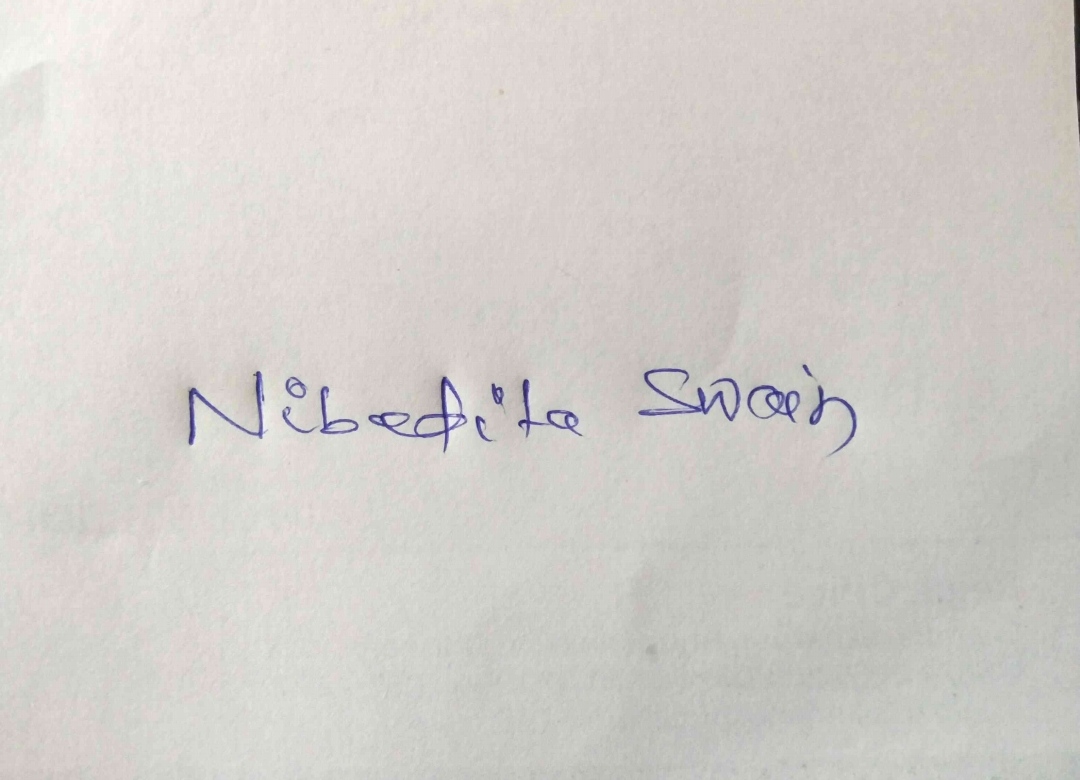 Nibedita Swain